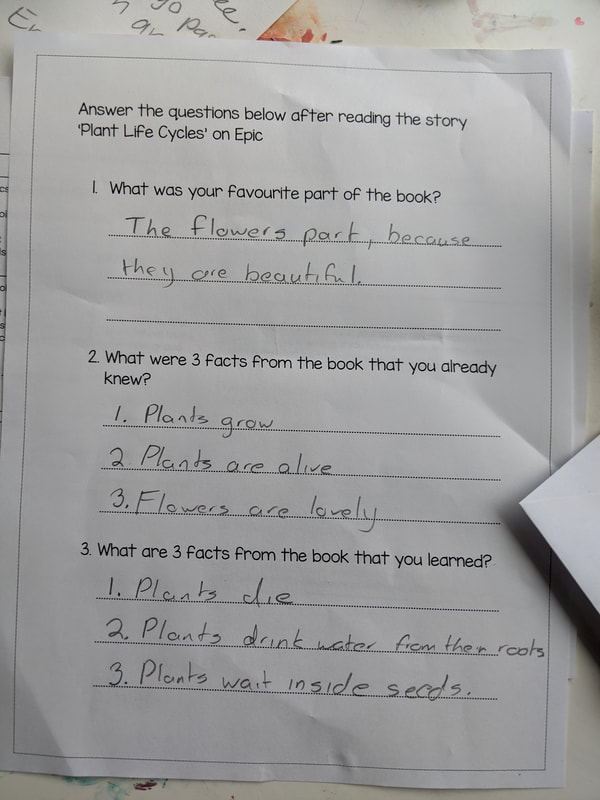 Answer the questions below after reading the story
'Plant Life Cycles' on Epic
1. What was your favourite part of the book?
The flowers part, because
they are beautiful.
2. What were 3 facts from the book that you already
knew?
1. Plants grow
2. Plants are alive
3. Flowers are lovely
3. What are 3 facts from the book that you learned?
1. Plants die
2. Plants drink water from their roots
3. Plants wait inside seeds.